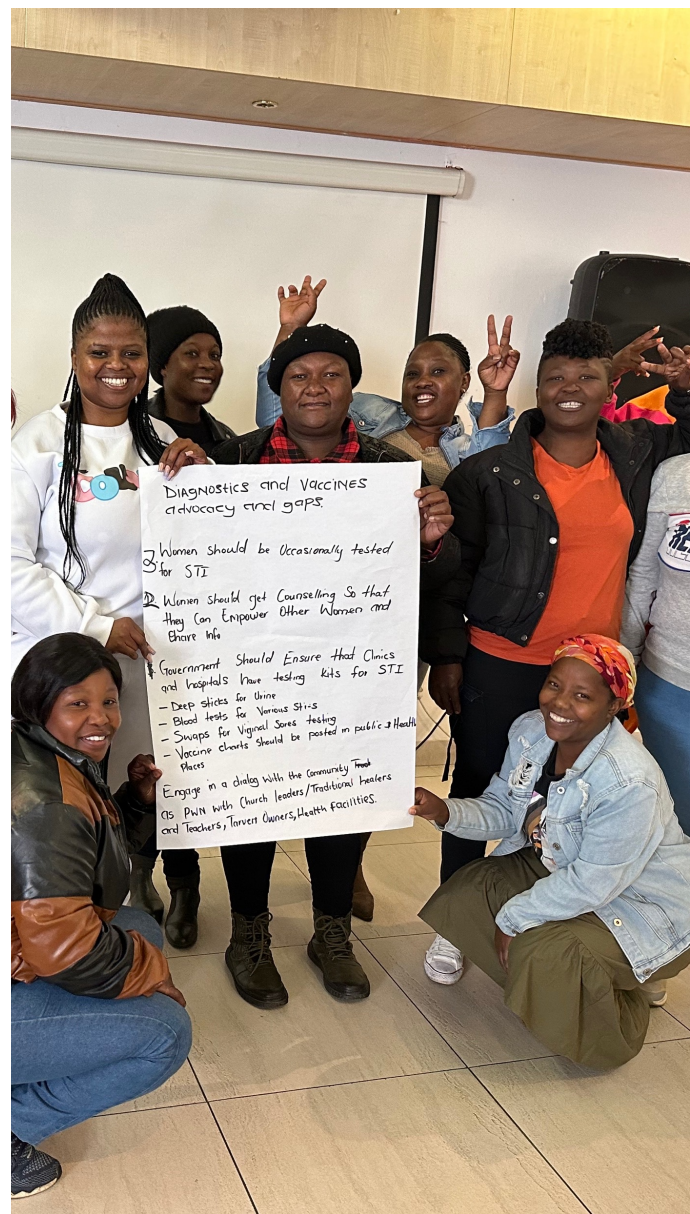 DIAGNOSTICS and VACCINES
advocacy and gaps.
Women should be Occasionally tested
for STI
Women should get Counselling So that
they Can Empower Other Women and
Share Info
Government Should Ensure that Clinics
and hospitals have testing kits for STI
- Deep sticks for Urine
- Blood tests for Various Sti-s
- Swaps for Viginal Sores testing
- Vaccine charts should be posted in public & Health
Places
Engage in a dialog with the Community
as PWN with Church leaders/Traditional healers
and Teachers, Tarvern Owners, Health facilities.